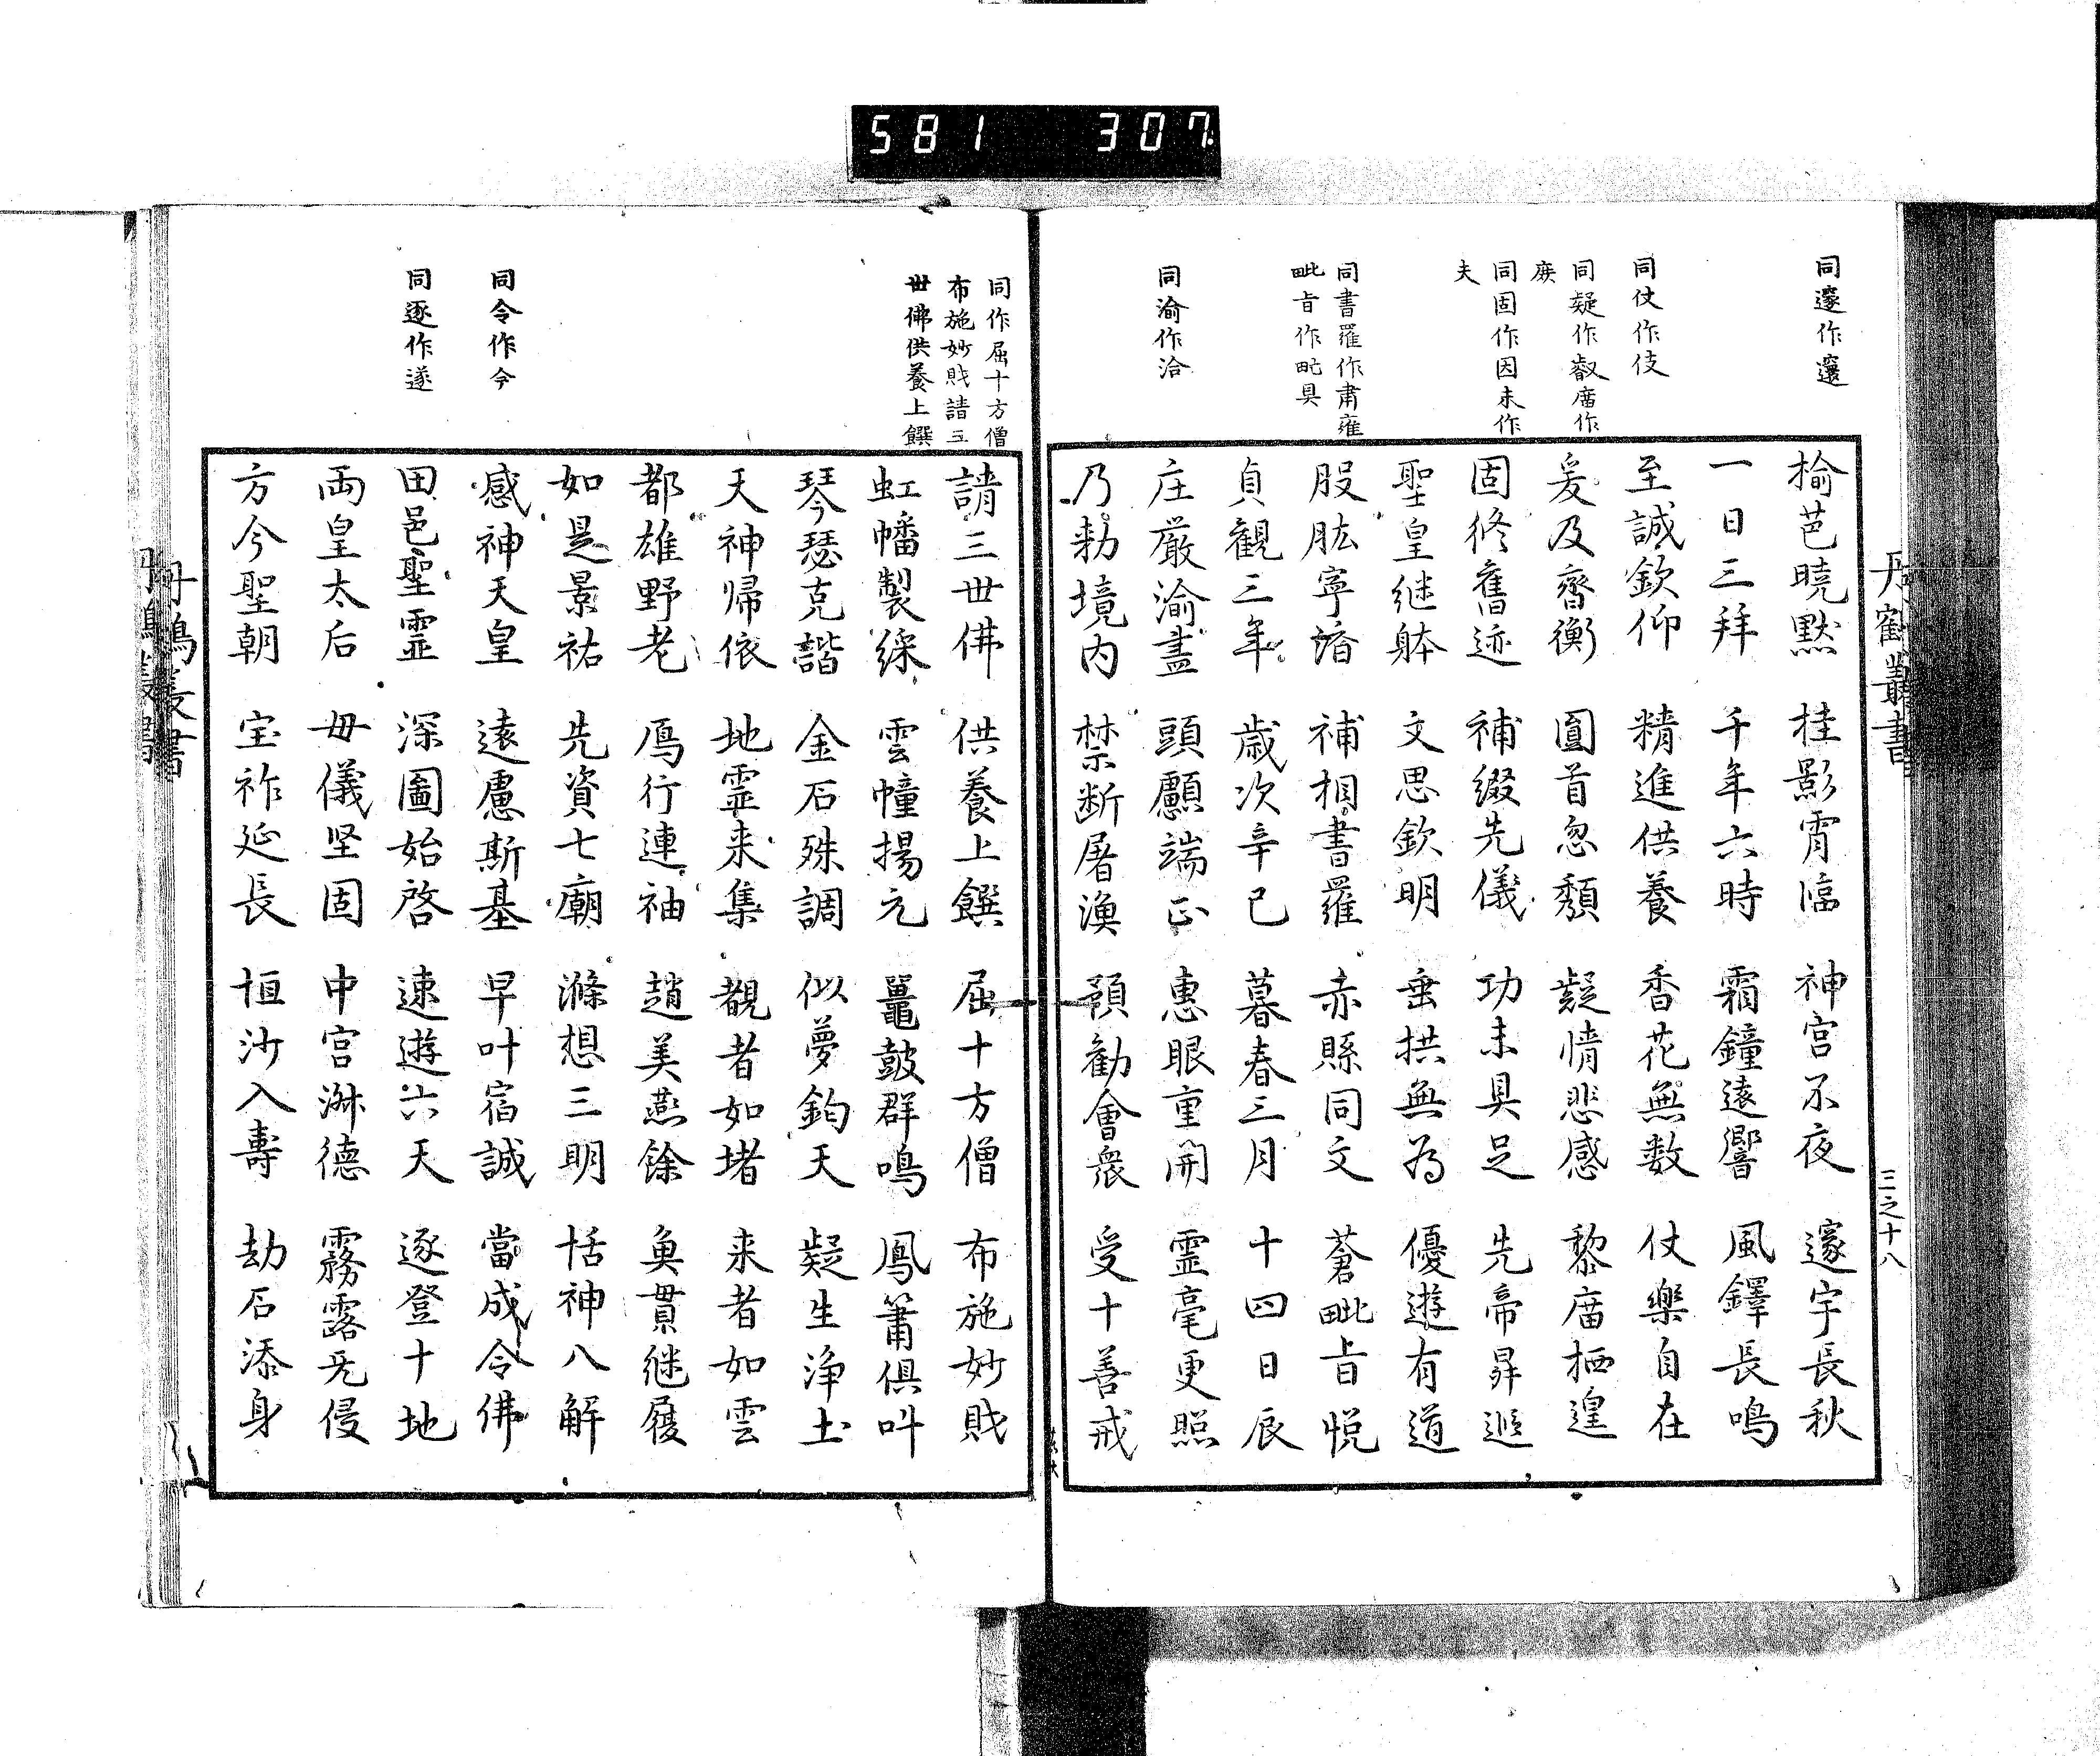 581 307
同邃作邃
同仗作伎
同疑作叡庿作
庶
同固作因未作
夫
同書羅作肅雍
毗旨作毗具
同渝作洽
丹鶴叢書
三之十八
榆芭曉黙 桂影霄臨 神宮不夜 邃宇長秋
一日三拜 千年六時 霜鐘遠響 風鐸長鳴
至誠欽仰 精進供養 香花無数 仗樂自在
爰及齊衡 圓首忽頽 疑情悲感 黎庿栖遑
固修舊迹 補綴先儀 功未具足 先帝昇遐
聖皇継躰 文思欽明 垂拱無為 優遊有道
股肱寧谙 補相書羅 赤縣同文 蒼毗旨悦
貞観三年 歳次辛巳 暮春三月 十四日辰
庄厳渝盡 頭顱端正 惠眼重開 霊毫更照
乃勅境内 禁断屠漁 預勧會衆 受十善戒
同作屈十方僧
布施妙賎請三
世佛供養上饌
同令作今
同逐作遂
請三世佛 供養上饌 屈十方僧 布施妙賎
虹幡製綵 雲幢揚元 鼉鼓群鳴 鳳簫俱叫
琴瑟克諧 金石殊調 似夢鈞天 疑生浄土
天神帰依 地霊来集 観者如堵 来者如雲
都雄野老 鳫行連袖 趙美燕餘 魚貫継履
如是景祐 先資七廟 滌想三明 恬神八解
感神天皇 遠慮斯基 早叶宿誠 當成令佛
田邑聖霊 深圖始啓 速遊六天 逐登十地
両皇太后 毋儀坚固 中宮淋徳 霧露无侵
方今聖朝 宝祚延長 恒沙入壽 劫石添身
丹鶴叢書